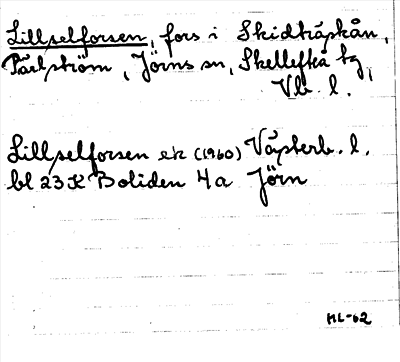 Lillselforsen, fors i Skidträskån,
Pärlström, Jörns sn, Skellefteå tg,
Vb. l.
Lillselforsen ek (1960) Västerb. l.
bl 23K Boliden 4a Jörn
ML-62